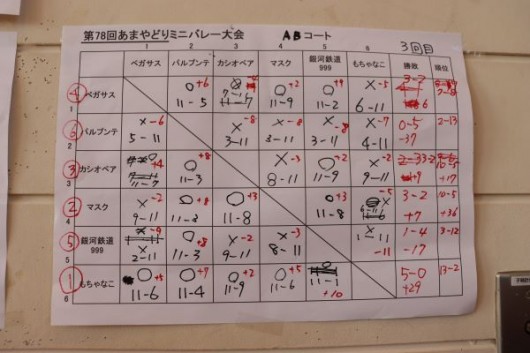 第78回あまやどりミニバレー大会 ABコート 3回目
1 2 3 4 5 6
ペガサス バルブンテ カシオペア マスク 銀河鉄道999 もちゃなこ 勝敗 順位
④ ペガサス ○+6 11-5 ○+2 11-9 ○+9 11-2 ×-5 6-11
1
バルブンテ ×-6 5-11 ×-8 3-11 ×-8 3-11 ×-8 3-11 ×-7 4-11 0-5 -37 2-13
2
③ カシオペア ○+8 11-3 ×-3 8-11 ○+2 11-9 ×-2 9-11
3
② マスク ×-2 9-11 ○+3 11-8 ○+3 11-8 3-2 +7 10-5 +36
4
⑤ 銀河鉄道999 ×-9 2-11 ○+8 11-3 ×-2 9-11 ×-3 8-11 1-4 -17 3-12
5
① もちゃなこ ○+5 11-6 ○+7 11-4 ○+2 11-9 ○+5 11-6 11-1 +10 5-0 +29 13-2
6